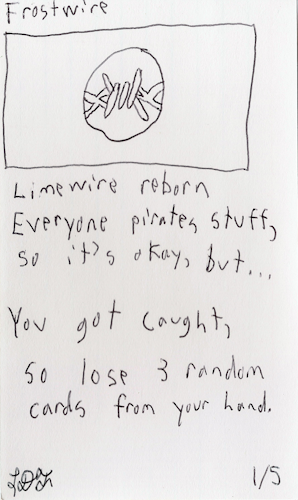 Frostwire
Limewire reborn
Everyone pirates stuff,
so it's okay, but...
You got caught,
so lose 3 random
cards from your hand.
1/5